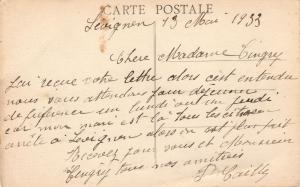 CARTE POSTALE
Levignen 13 Mai 1933
Chere Madame Tingry
J'ai reçue votre lettre alors c'est entendu
nous vous attendrons pour dejeuner
de préférence un lundi ou un jeudi
car mon mari est là tous les
arrête à Levignen alors on est plus
Recevez pour vous et Monsieur
Tingry tous nos amitiés